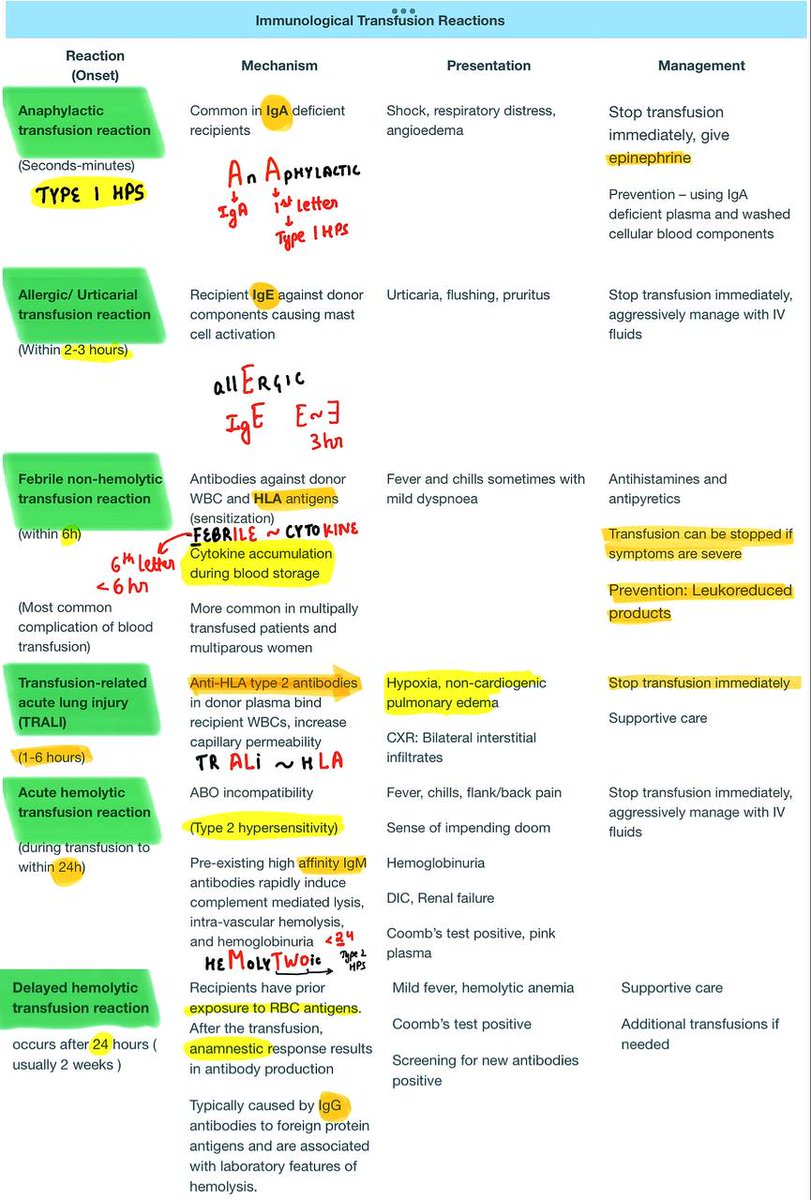 Immunological Transfusion Reactions
Reaction
(Onset)
Mechanism
Presentation
Management
Anaphylactic
transfusion reaction
(Seconds-minutes)
TYPE 1 HPS
Common in IgA deficient
recipients
AnAPHYLACTIC
IgA
1st Letter
Type 1 HPS
Shock, respiratory distress,
angioedema
Stop transfusion
immediately, give
epinephrine
Prevention – using IgA
deficient plasma and washed
cellular blood components
Allergic/ Urticarial
transfusion reaction
(Within 2-3 hours)
Recipient IgE against donor
components causing mast
cell activation
allERGIC
IgE E~Ǝ
3hr
Urticaria, flushing, pruritus
Stop transfusion immediately,
aggressively manage with IV
fluids
Febrile non-hemolytic
transfusion reaction
(within 6h)
6th Letter
< 6 hr
(Most common
complication of blood
transfusion)
Antibodies against donor
WBC and HLA antigens
(sensitization)
FEBRILE ~ CYTOKINE
Cytokine accumulation
during blood storage
More common in multipally
transfused patients and
multiparous women
Fever and chills sometimes with
mild dyspnoea
Antihistamines and
antipyretics
Transfusion can be stopped if
symptoms are severe
Prevention: Leukoreduced
products
Transfusion-related
acute lung injury
(TRALI)
(1-6 hours)
Anti-HLA type 2 antibodies
in donor plasma bind
recipient WBCs, increase
capillary permeability
TRALi ~ HLA
Hypoxia, non-cardiogenic
pulmonary edema
CXR: Bilateral interstitial
infiltrates
Stop transfusion immediately
Supportive care
Acute hemolytic
transfusion reaction
(during transfusion to
within 24h)
ABO incompatibility
(Type 2 hypersensitivity)
Pre-existing high affinity IgM
antibodies rapidly induce
complement mediated lysis,
intra-vascular hemolysis,
and hemoglobinuria
<24
HEMOLYTWOic
Type 2
HPS
Fever, chills, flank/back pain
Sense of impending doom
Hemoglobinuria
DIC, Renal failure
Coomb's test positive, pink
plasma
Stop transfusion immediately,
aggressively manage with IV
fluids
Delayed hemolytic
transfusion reaction
occurs after 24 hours (
usually 2 weeks )
Recipients have prior
exposure to RBC antigens.
After the transfusion,
anamnestic response results
in antibody production
Typically caused by IgG
antibodies to foreign protein
antigens and are associated
with laboratory features of
hemolysis.
Mild fever, hemolytic anemia
Coomb's test positive
Screening for new antibodies
positive
Supportive care
Additional transfusions if
needed